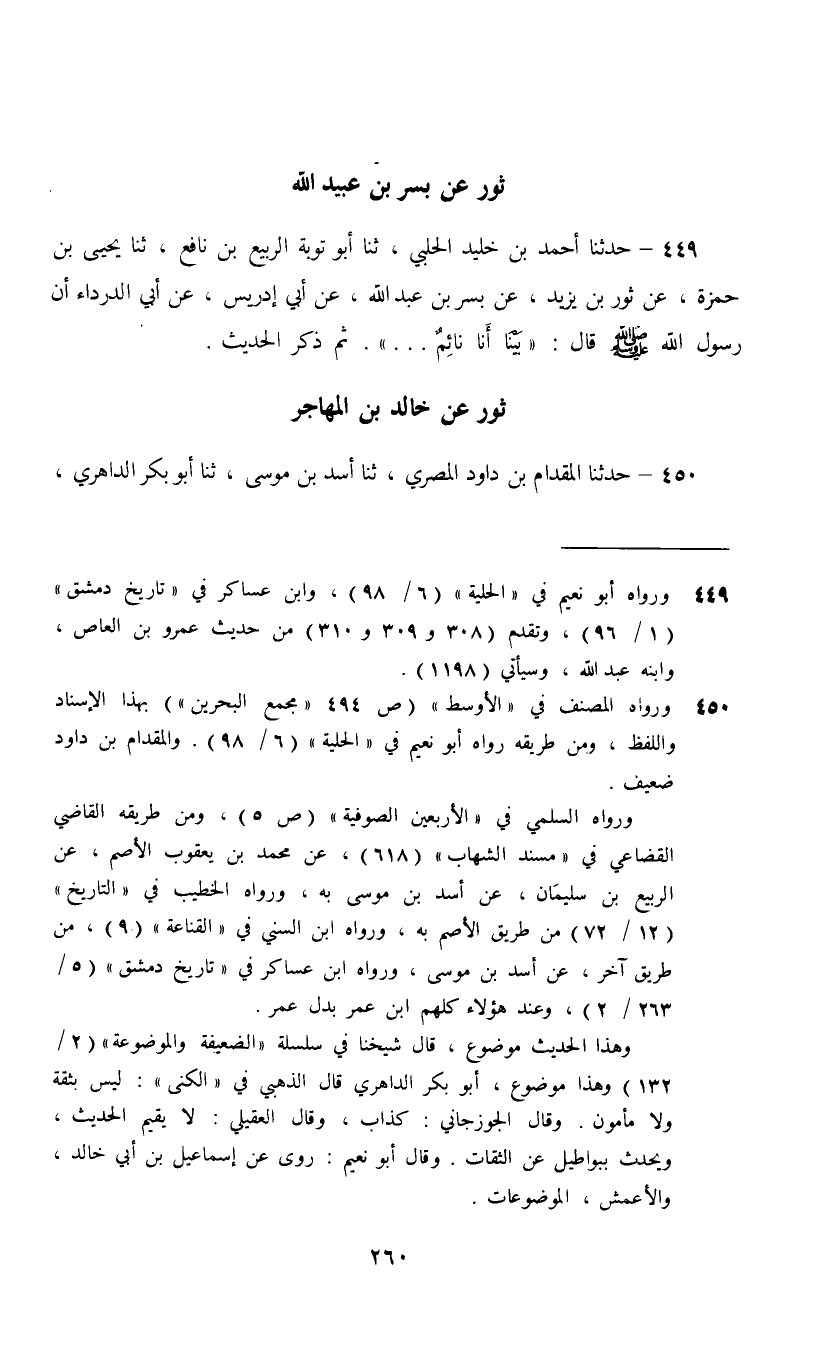 ثور عن بسر بن عبيد الله
٤٤٩ – حدثنا أحمد بن خليد الحلبي ، ثنا أبو توبة الربيع بن نافع ، ثنا يحيى بن
حمزة ، عن ثور بن يزيد ، عن بسر بن عبد الله ، عن أبي إدريس ، عن أبي الدرداء أن
رسول الله ﷺ قال : « بَيْنَا أَنا نائِمٌ . . . » . ثم ذكر الحديث .
ثور عن خالد بن المهاجر
٤٥٠ – حدثنا المقدام بن داود المصري ، ثنا أسد بن موسى ، ثنا أبو بكر الداهري ،
٤٤٩ ورواه أبو نعيم في « الحلية » ( ٦ / ٩٨ ) ، وابن عساكر في « تاريخ دمشق »
( ١ / ٩٦ ) ، وتقدم ( ٣٠٨ و ٣٠٩ و ٣١٠ ) من حديث عمرو بن العاص ،
وابنه عبد الله ، وسيأتي ( ١١٩٨ ) .
٤٥٠ ورواه المصنف في « الأوسط » ( ص ٤٩٤ « مجمع البحرين » ) بهذا الإسناد
واللفظ ، ومن طريقه رواه أبو نعيم في « الحلية » ( ٦ / ٩٨ ) . والمقدام بن داود
ضعيف .
ورواه السلمي في « الأربعين الصوفية » ( ص ٥ ) ، ومن طريقه القاضي
القضاعي في « مسند الشهاب » ( ٦١٨ ) ، عن محمد بن يعقوب الأصم ، عن
الربيع بن سليمَان ، عن أسد بن موسى به ، ورواه الخطيب في « التاريخ »
( ١٢ / ٧٢ ) من طريق الأصم به ، ورواه ابن السني في « القناعة » ( ٩ ) ، من
طريق آخر ، عن أسد بن موسى ، ورواه ابن عساكر في « تاريخ دمشق » ( ٥ /
٢٦٣ / ٢ ) ، وعند هؤلاء كلهم ابن عمر بدل عمر .
وهذا الحديث موضوع ، قال شيخنا في سلسلة «الضعيفة والموضوعة» ( ٢ /
١٣٢ ) وهذا موضوع ، أبو بكر الداهري قال الذهبي في « الكنى » : ليس بثقة
ولا مأمون . وقال الجوزجاني : كذاب ، وقال العقيلي : لا يقيم الحديث ،
ويحدث ببواطيل عن الثقات . وقال أبو نعيم : روى عن إسماعيل بن أبي خالد ،
والأعمش ، الموضوعات .
٢٦٠